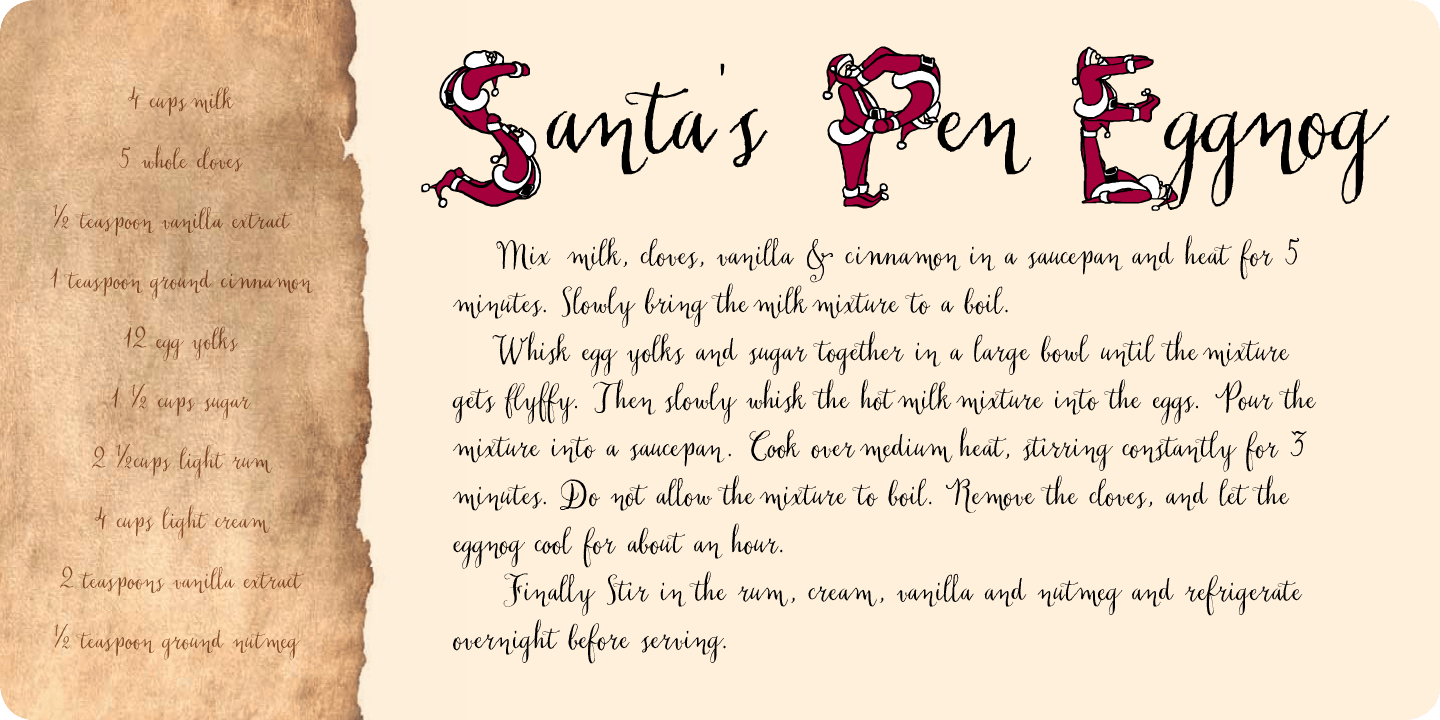 4 cups milk
5 whole cloves
½ teaspoon vanilla extract
1 teaspoon ground cinnamon
12 egg yolks
1 ½ cups sugar
2 ½cups light rum
4 cups light cream
2 teaspoons vanilla extract
½ teaspoon ground nutmeg
Santa's Pen Eggnog
Mix milk, cloves, vanilla & cinnamon in a saucepan and heat for 5
minutes. Slowly bring the milk mixture to a boil.
Whisk egg yolks and sugar together in a large bowl until the mixture
gets flyffy. Then slowly whisk the hot milk mixture into the eggs. Pour the
mixture into a saucepan. Cook over medium heat, stirring constantly for 3
minutes. Do not allow the mixture to boil. Remove the cloves, and let the
eggnog cool for about an hour.
Finally Stir in the rum, cream, vanilla and nutmeg and refrigerate
overnight before serving.